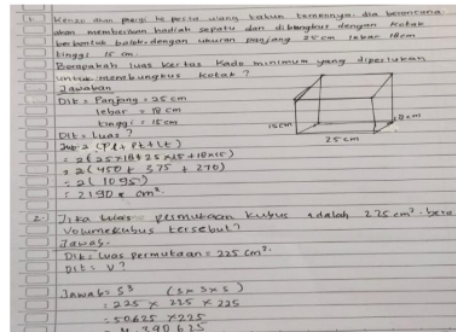 1. Kenzo akan pergi ke pesta ulang tahun temannya. dia berencana
akan memberikan hadiah sepatu dan dibungkus dengan kotak
berbentuk balok dengan ukuran panjang 25 cm lebar 18cm
tinggi 15 cm.
Berapakah luas kertas kado minimum yang diperlukan
untuk membungkus kotak ?
Jawaban
Dik = Panjang = 25 cm
lebar = 18 cm
tinggi = 15 cm
Dit = Luas ?
= 2 (Pl + Pt + Lt)
= 2 (25x18 + 25x15 + 18x15)
= 2 (450 + 375 + 270)
= 2 (1095)
= 2190 cm².
15cm
18cm
25 cm
2. Jika luas permutaan kubus adalah 225 cm².
Volume kubus tersebut?
Jawab.
Dik = Luas permutaan = 225 cm².
Dit = V ?
Jawab = S³ (S x S x S)
= 225 x 225 x 225
= 50625 x 225